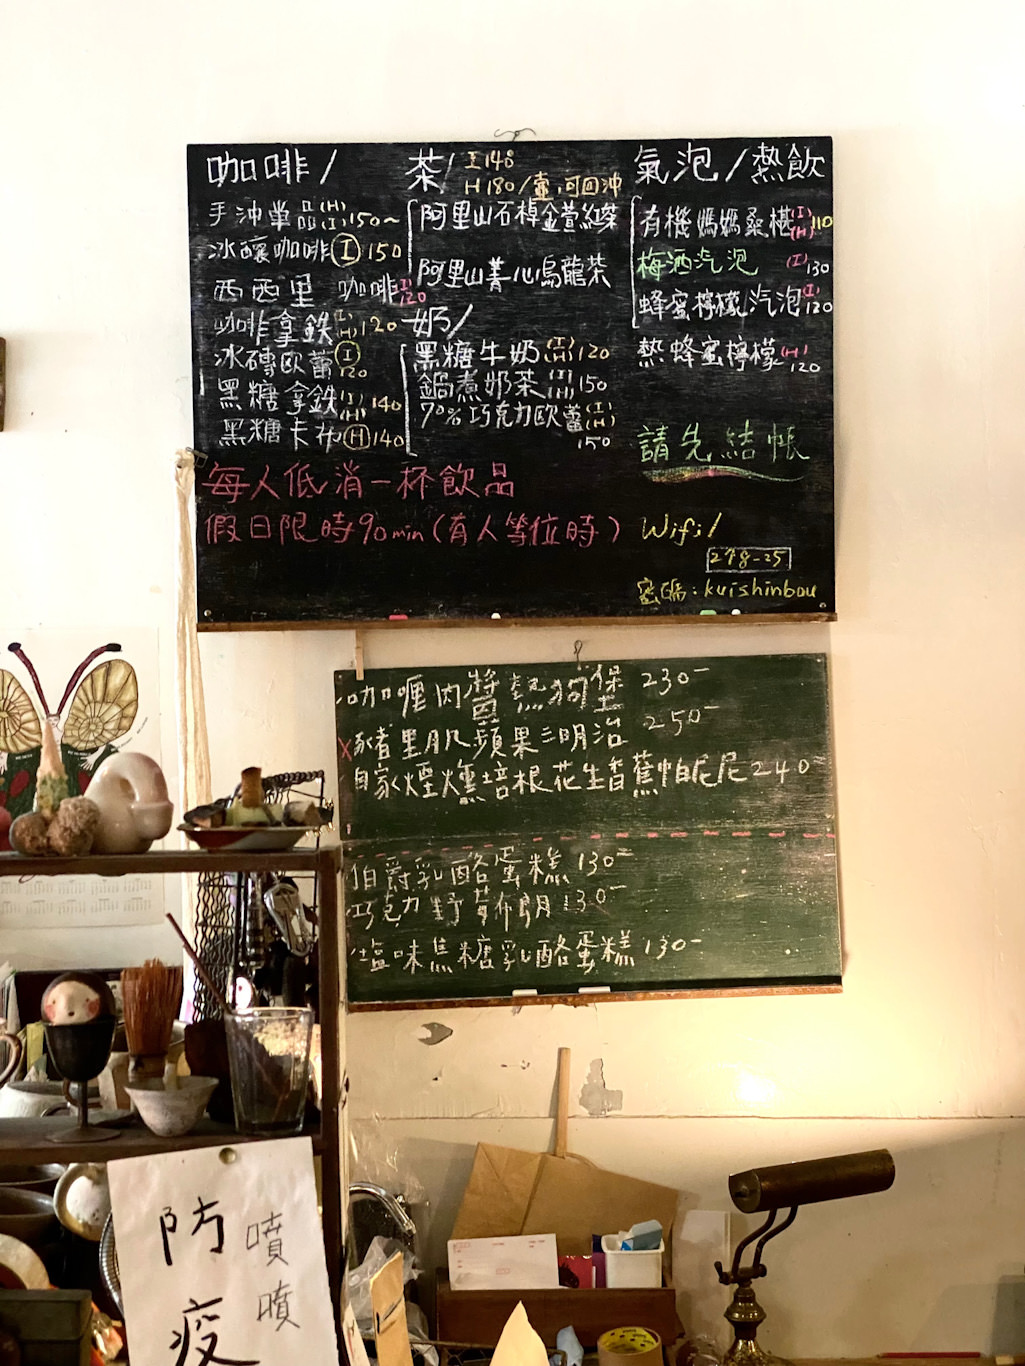 咖啡/
手沖單品(H)(I)150~
冰釀咖啡(I)150
西西里 咖啡(I)120
咖啡拿鐵(I)(H)120
冰磚歐蕾(I)120
黑糖拿鐵(I)(H)140
黑糖卡布(H)140
茶/ I 140
H 180/壺,可回沖
阿里山石棹金萱紅茶
阿里山菁心烏龍茶
奶/
黑糖牛奶(I)(H)120
鍋煮奶茶(I)(H)150
70%巧克力歐蕾(I)(H)
150
氣泡/熱飲
有機媽媽桑椹(I)(H)110
梅酒汽泡 (I)130
蜂蜜檸檬汽泡(I)130
熱蜂蜜檸檬(H)120
請先結帳
每人低消一杯飲品
假日限時90min(有人等位時)
Wifi/
278-25
密碼:kuishinbou
咖喱肉醬熱狗堡 230-
X 豬里肌蘋果三明治 250-
自家煙燻培根花生香蕉帕尼尼 240-
伯爵乳酪蛋糕 130-
巧克力野莓布朗 130-
塩味焦糖乳酪蛋糕 130-
防疫
噴噴